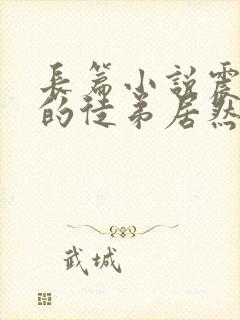 長篇小說震
的徒弟居然
武城